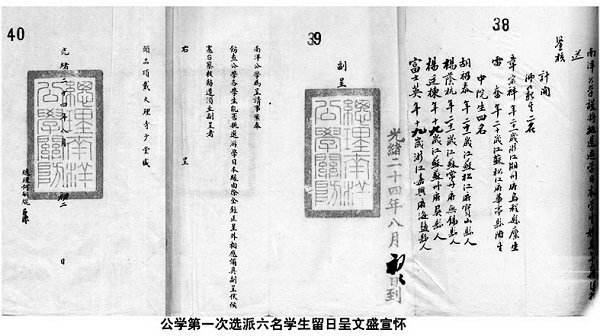 38
南洋公學謹將挑選遊學日本學生
送
鑒核
計開
師範生二名
章宗祥年二十一歲浙江湖州府烏程縣廩生
雷奮年二十歲江蘇松江府華亭縣附生
中院生四名
胡礽泰年二十一歲江蘇松江府寶山縣人
楊蔭杭年二十一歲江蘇常州府無錫縣人
楊廷棟年十九歲江蘇蘇州府吳縣人
富士英年十九歲浙江嘉興府海鹽縣人
光緒二十四年八月初 日到
39
副呈
總理南洋
公學關防
南洋公學為呈請事竊奉
飭查公學各學生擬酌挑選游學日本緣由除全錄正呈外相應備具副呈伏候
憲台察核飭遵須至副呈者
右 呈
40
頭品頂戴大理寺少堂盛
總理南洋
公學關防
光緒二十四年八月 日
公学第一次选派六名学生留日呈文盛宣怀